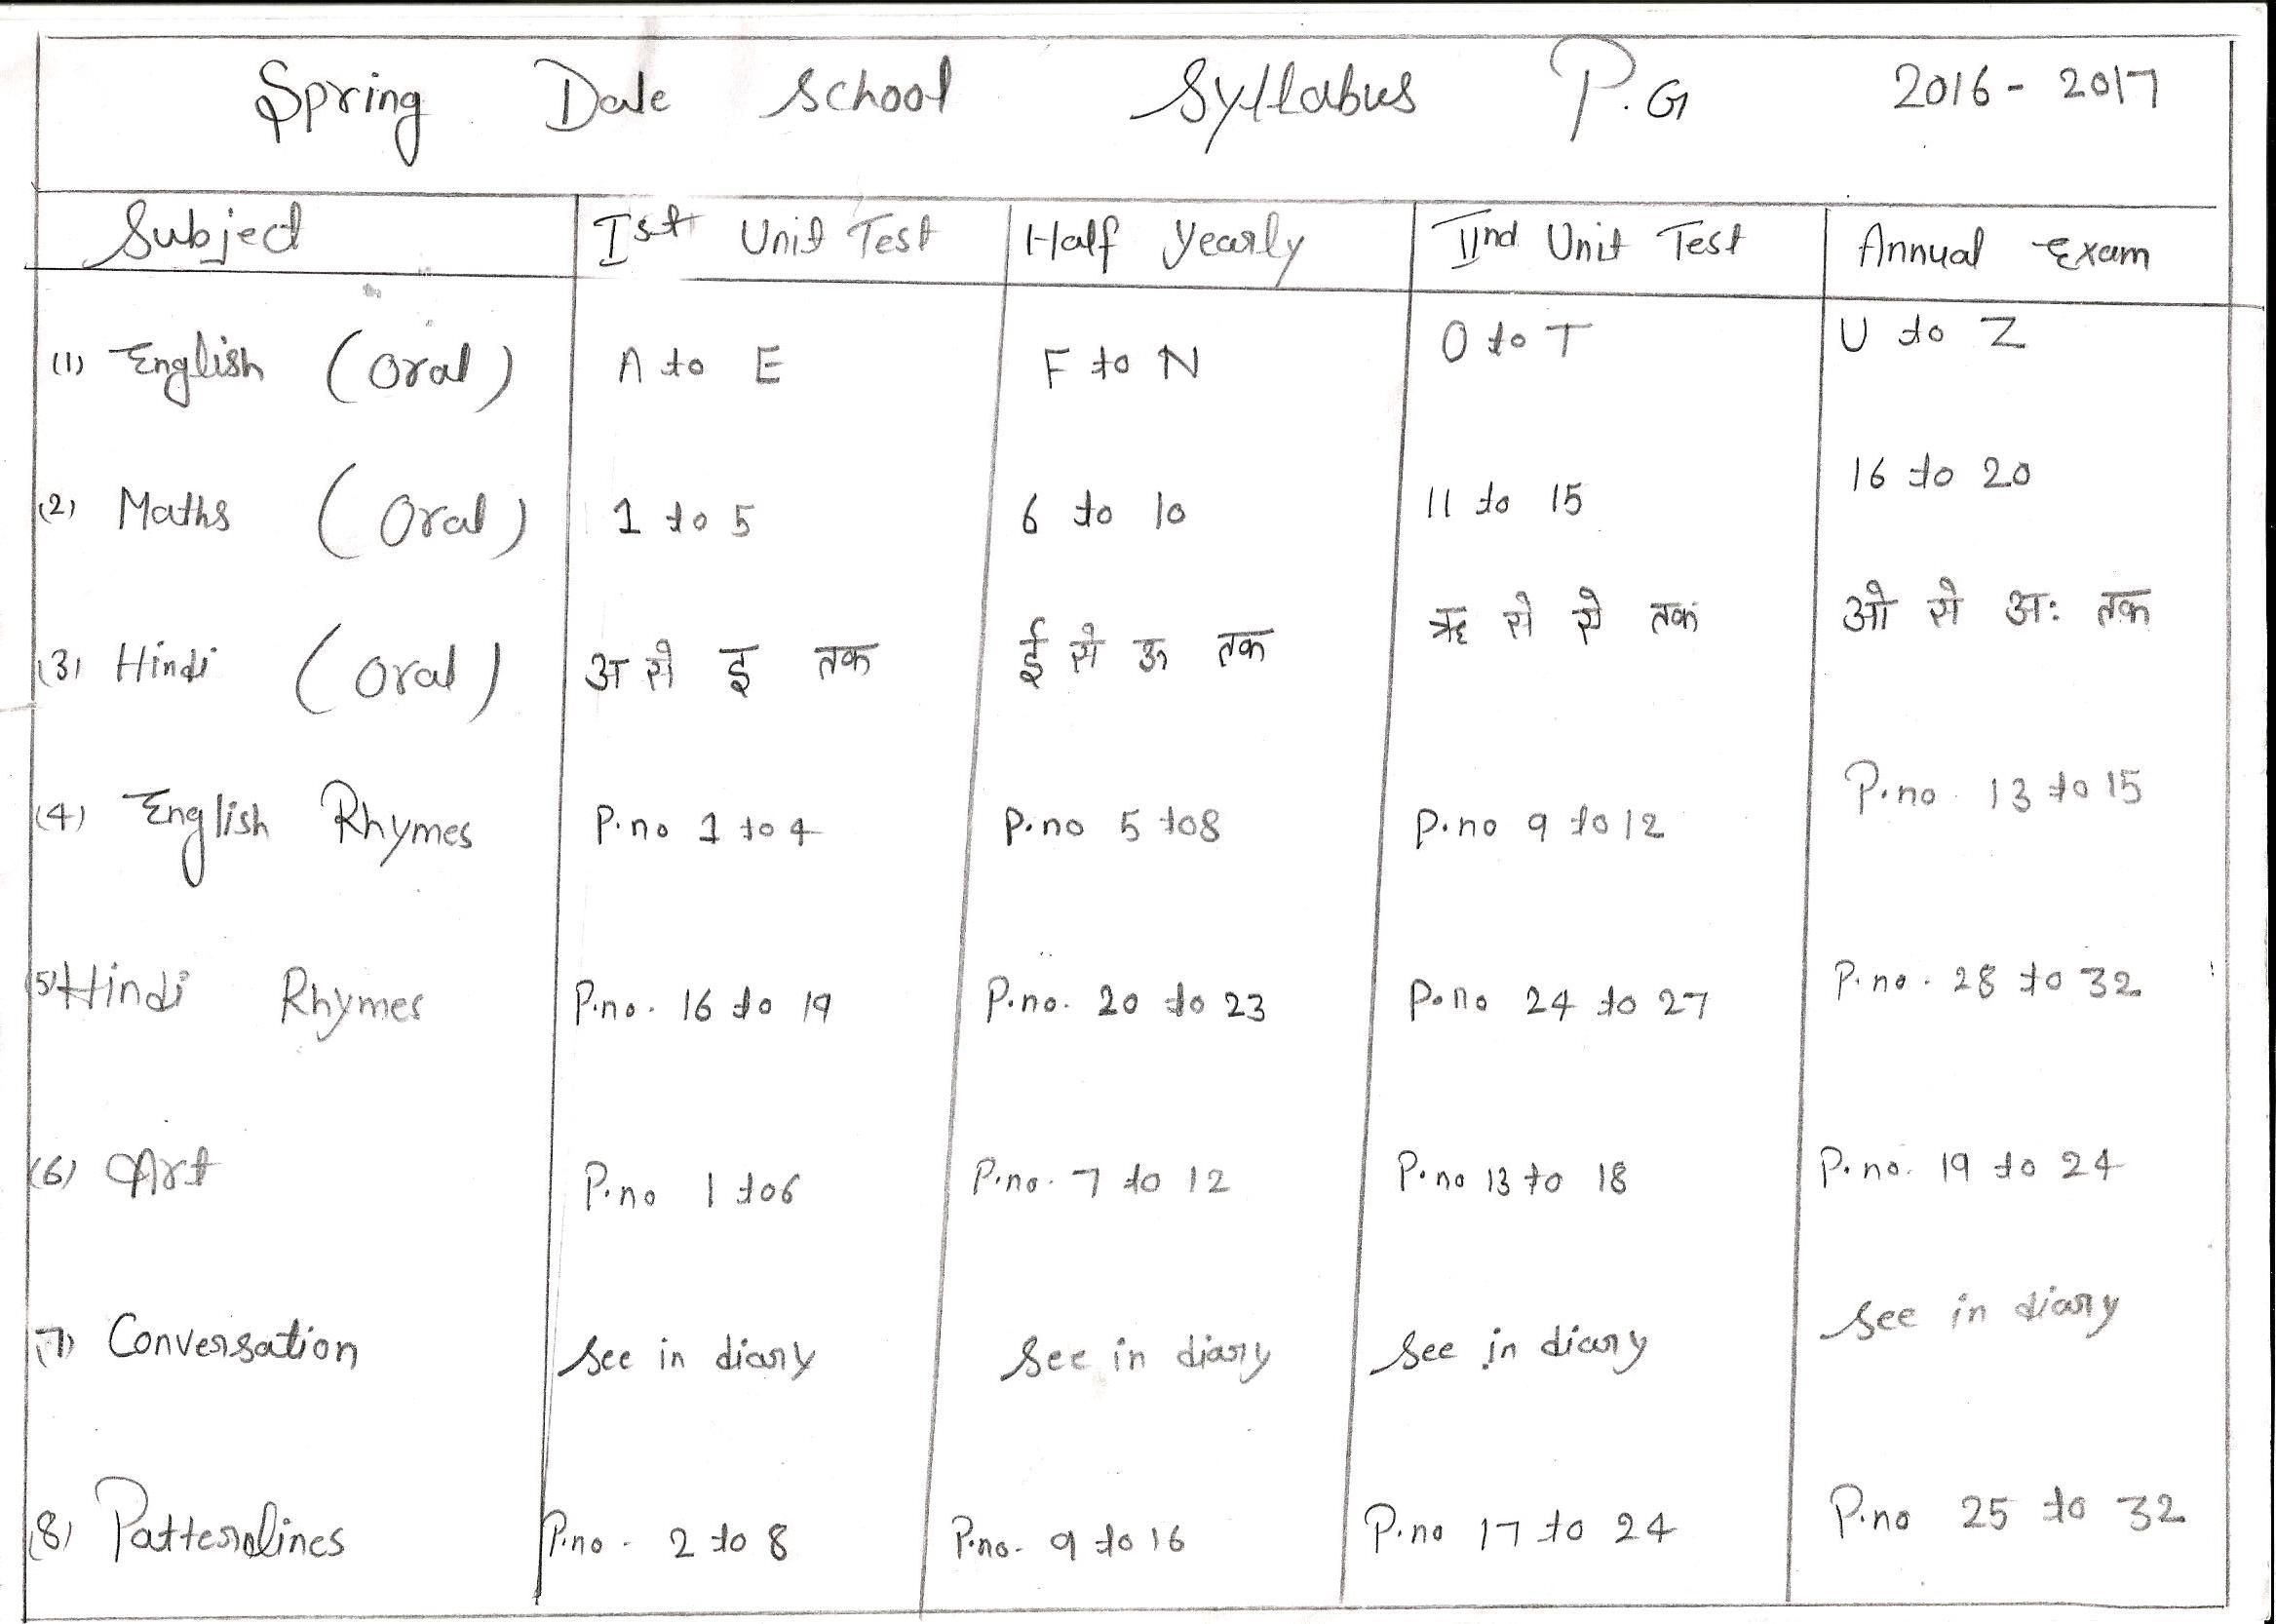 Spring Dale School Syllabus P.G 2016-2017
Subject Ist Unit Test Half Yearly IInd Unit Test Annual Exam
(1) English (Oral) A to E F to N O to T U to Z
(2) Maths (Oral) 1 to 5 6 to 10 11 to 15 16 to 20
(3) Hindi (Oral) अ से इ तक ई से ऊ तक ऋ से तक ओ से अः तक
(4) English Rhymes P.no 1 to 4 P.no 5 to 8 P.no 9 to 12 P.no 13 to 15
(5) Hindi Rhymes P.no. 16 to 19 P.no. 20 to 23 P.no 24 to 27 P.no. 28 to 32
(6) Art P.no 1 to 6 P.no. 7 to 12 P.no 13 to 18 P.no. 19 to 24
(7) Conversation See in diary See in diary See in diary See in diary
(8) Patternlines P.no. 2 to 8 P.no. 9 to 16 P.no 17 to 24 P.no 25 to 32